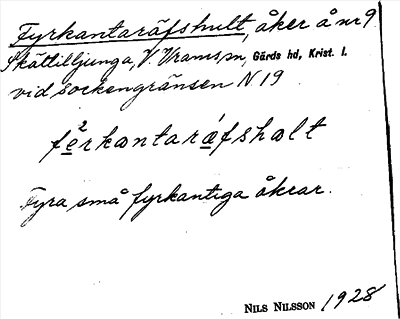 Fyrkantaräfshult, åker å nr 9
Skättilljunga, V. Vrams sn, Gärds hd, Krist. l.
vid sockengränsen N 19
fe²rkantaræ´fshalt
Fyra små fyrkantiga åkrar.
NILS NILSSON 1928